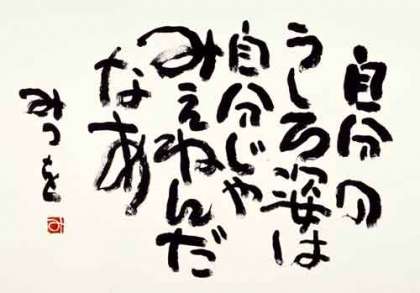 自分の
うしろ姿は
自分じゃ
みえねんだ
なあ
みつを
み